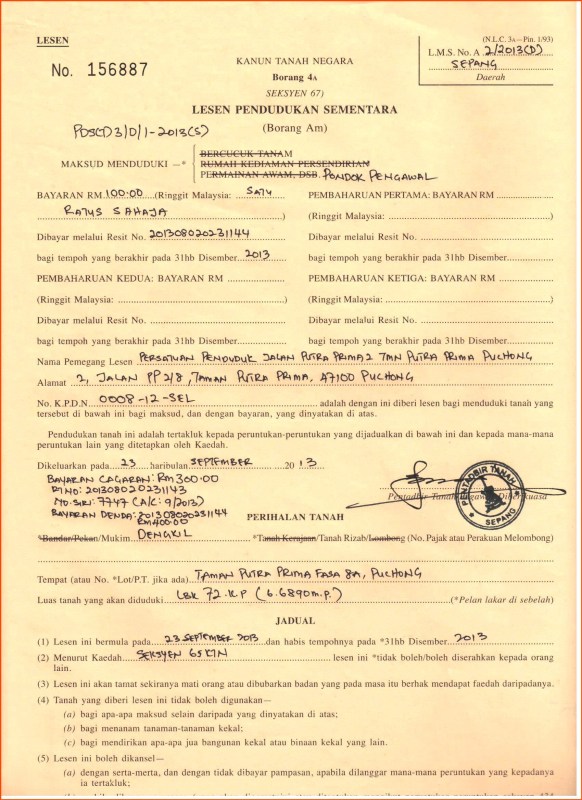 LESEN
(N.L.C. 3A—Pin. 1/93)
L.M.S. No. A 2/2013(D)
SEPANG
Daerah
No. 156887
KANUN TANAH NEGARA
Borang 4A
SEKSYEN 67)
LESEN PENDUDUKAN SEMENTARA
(Borang Am)
PDS(T)3/D/1-2013(S)
MAKSUD MENDUDUKI —*
BERCUCUK TANAM
RUMAH KEDIAMAN PERSENDIRIAN
PERMAINAN AWAM, DSB. PONDOK PENGAWAL
BAYARAN RM 100.00 (Ringgit Malaysia: SATU
RATUS SAHAJA )
Dibayar melalui Resit No. 201308020231144
bagi tempoh yang berakhir pada 31hb Disember 2013
PEMBAHARUAN PERTAMA: BAYARAN RM
(Ringgit Malaysia: )
Dibayar melalui Resit No.
bagi tempoh yang berakhir pada 31hb Disember
PEMBAHARUAN KEDUA: BAYARAN RM
(Ringgit Malaysia: )
Dibayar melalui Resit No.
bagi tempoh yang berakhir pada 31hb Disember
PEMBAHARUAN KETIGA: BAYARAN RM
(Ringgit Malaysia: )
Dibayar melalui Resit No.
bagi tempoh yang berakhir pada 31hb Disember
Nama Pemegang Lesen PERSATUAN PENDUDUK JALAN PUTRA PRIMA 2 TMN PUTRA PRIMA PUCHONG
Alamat 2, JALAN PP 2/8, TAMAN PUTRA PRIMA, 47100 PUCHONG
No. K.P.D.N. 0008-12-SEL adalah dengan ini diberi lesen bagi menduduki tanah yang
tersebut di bawah ini bagi maksud, dan dengan bayaran, yang dinyatakan di atas.
Pendudukan tanah ini adalah tertakluk kepada peruntukan-peruntukan yang dijadualkan di bawah ini dan kepada mana-mana
peruntukan lain yang ditetapkan oleh Kaedah.
Dikeluarkan pada 23 haribulan SEPTEMBER 2013
BAYARAN CAGARAN: RM300.00
R/NO: 201308020231143
NO. SIRI: 7747 (A/C: 9/2013)
BAYARAN DENDA: 201308020231144
RM400.00
Pentadbir Tanah/Pegawai Diberi Kuasa
PENTADBIR TANAH
SEPANG
PERIHALAN TANAH
*Bandar/Pekan/Mukim DENGKIL *Tanah Kerajaan/Tanah Rizab/Lombong (No. Pajak atau Perakuan Melombong)
Tempat (atau No. *Lot/P.T. jika ada) TAMAN PUTRA PRIMA FASA 8A, PUCHONG
Luas tanah yang akan diduduki LBK 72 K.P (6.6890 m.p.) (*Pelan lakar di sebelah)
JADUAL
(1) Lesen ini bermula pada 23 SEPTEMBER 2013 dan habis tempohnya pada *31hb Disember 2013
(2) Menurut Kaedah SEKSYEN 65 KTN lesen ini *tidak boleh/boleh diserahkan kepada orang
lain.
(3) Lesen ini akan tamat sekiranya mati orang atau dibubarkan badan yang pada masa itu berhak mendapat faedah daripadanya.
(4) Tanah yang diberi lesen ini tidak boleh digunakan—
(a) bagi apa-apa maksud selain daripada yang dinyatakan di atas;
(b) bagi menanam tanaman-tanaman kekal;
(c) bagi mendirikan apa-apa jua bangunan kekal atau binaan kekal yang lain.
(5) Lesen ini boleh dikansel—
(a) dengan serta-merta, dan dengan tidak dibayar pampasan, apabila dilanggar mana-mana peruntukan yang kepadanya
ia tertakluk;